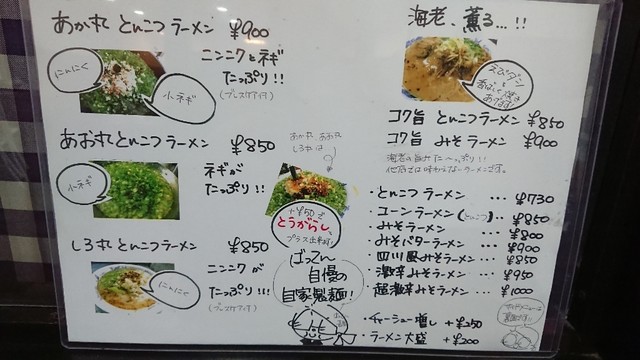 あか丸 とんこつ ラーメン ¥900
ニンニクとネギ
たっぷり!!
(ブレスケア付)
にんにく
小ネギ
あお丸 とんこつ ラーメン ¥850
ネギが
たっぷり!!
小ネギ
しろ丸 とんこつ ラーメン ¥850
ニンニクが
たっぷり!!!
(ブレスケア付)
にんにく
あか丸、あお丸
しろ丸は
+¥50で
とうがらし
プラス出来ます
ばってん
自慢の
自家製麺!
海老、薫る…!!
えびダシ
コク旨 とんこつ ラーメン ¥850
コク旨 みそ ラーメン ¥900
海老の旨みた〜っぷり!!
他店では味わえないラーメンです。
・とんこつ ラーメン … ¥730
・コーン ラーメン (とんこつ) … ¥850
・みそ ラーメン … ¥800
・みそバター ラーメン … ¥900
・四川風みそ ラーメン … ¥850
・激辛みそ ラーメン … ¥950
・超激辛みそ ラーメン … ¥1000
・チャーシュー増し +¥250
・ラーメン大盛 +¥200
サイドメニューは
裏面です。